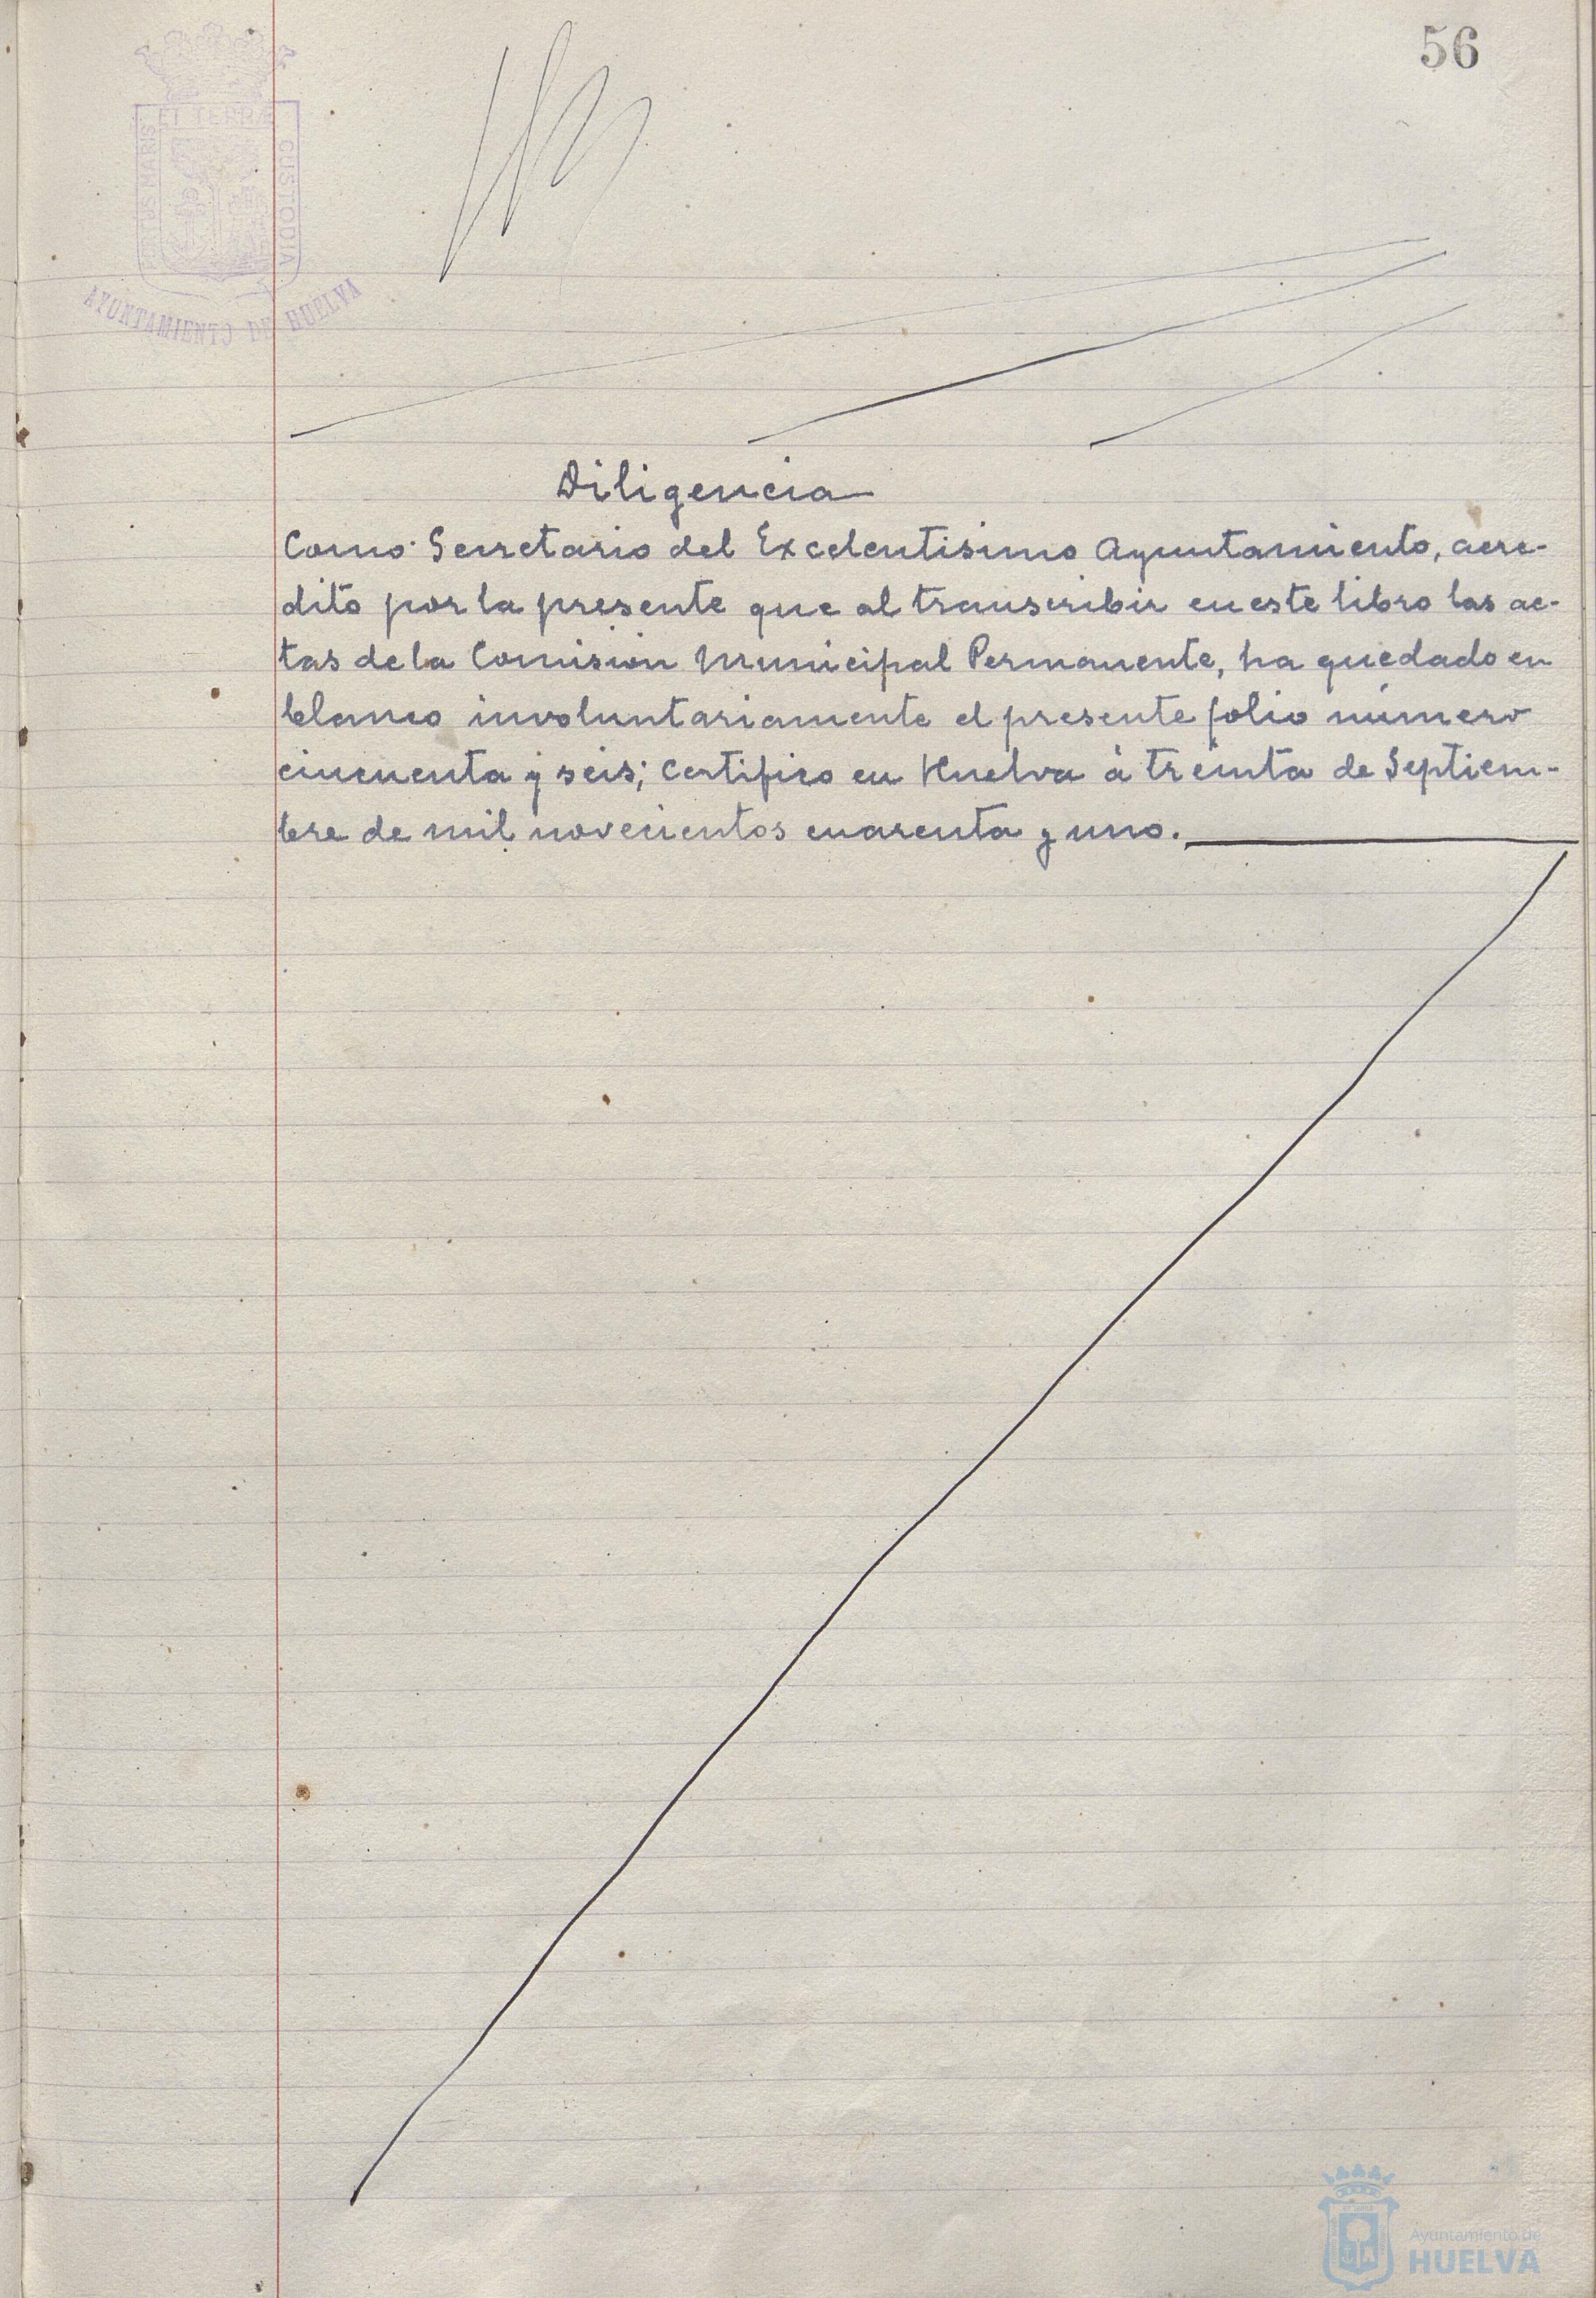 56
PORTUS MARIS
ET TERRÆ
CUSTODIA
AYUNTAMIENTO DE HUELVA
Diligencia
Como Secretario del Excelentisimo Ayuntamiento, acre-
dito por la presente que al transcribir en este libro las ac-
tas de la Comisión Municipal Permanente, ha quedado en
blanco involuntariamente el presente folio número
cincuenta y seis; Certifico en Huelva á treinta de Septiem-
bre de mil novecientos cuarenta y uno.
Ayuntamiento de
HUELVA